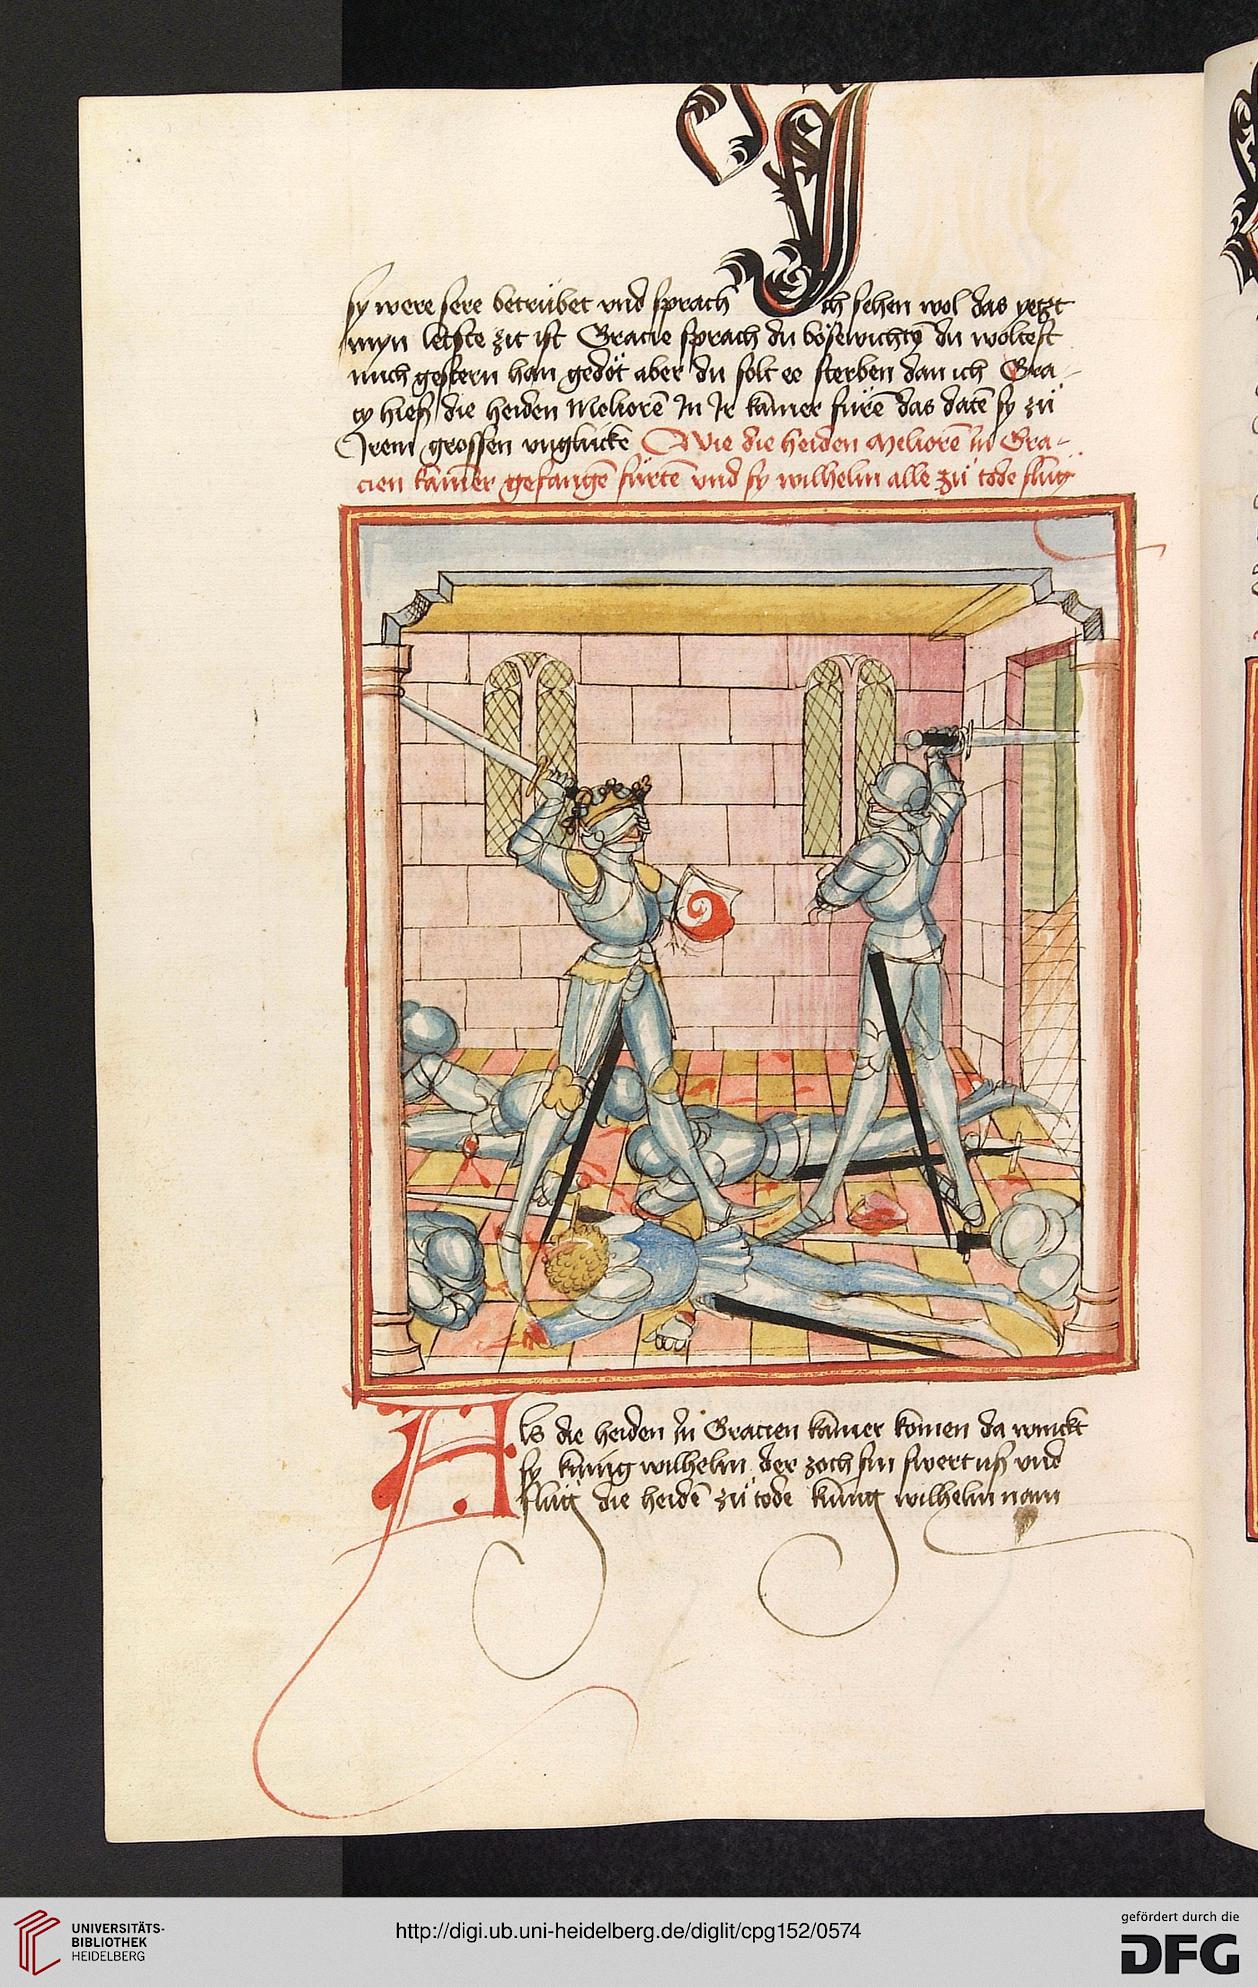 sy were sere betrübet vnd sprach Ich sehen wol das yetzt
myn letste zit ist Gracie sprach du bösewicht du woltest
mich gestern han gedöt aber du solt ee sterben dan ich Gra-
cy hieß die heiden Meliorē In Ir kāmer fürē das datē sy zů
Irem grossen vnglücke Wie die heiden Meliorē in Gra-
cien kāmer gefangē fürtē vnd sy wilhelm alle zů tode slůg
Als die heiden in Gracien kāmer komen da
sy kúnig wilhelm der zoch sin swert uß vnd
slůg die heidē zů tode kúnig wilhelm nam
UNIVERSITÄTS-
BIBLIOTHEK
HEIDELBERG
http://digi.ub.uni-heidelberg.de/diglit/cpg152/0574
gefördert durch die
DFG